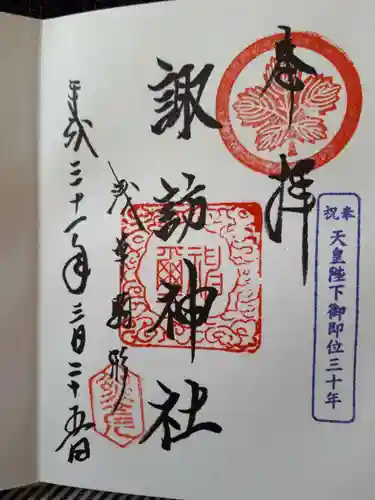 奉拝
奉祝 天皇陛下御即位三十年
諏訪神社
浅草駒形
平成三十一年三月二十五日